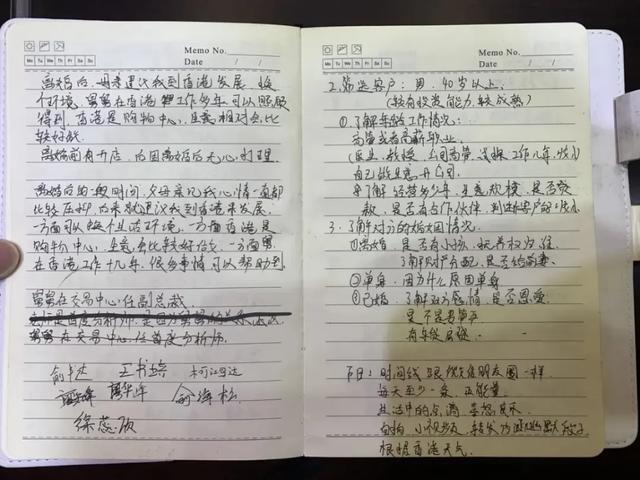 Memo No.
Mo Tu We Th Fr Sa Su
Date / /
离婚后,舅舅建议我到香港发展,换
个环境,舅舅在香港工作多年可以照顾
得到,香港是购物中心,生意相对会比
较好做
离婚前有开店,后因离婚后无心打理
离婚后的一段时间,父母亲见我心情一直都
比较压抑,后来就建议我到香港来发展,
一方面可以换个生活环境,一方面香港是
购物中心,生意会比较好做,一方面舅舅
在香港工作十几年,很多事情可以帮助到
舅舅在交易中心任副总裁
舅舅在交易中心,任首度分析师.
徐蕊欣
Memo No.
Mo Tu We Th Fr Sa Su
Date / /
2.筛选客户:男,40岁以上.
(较有投资能力,较成熟)
①了解年龄工作情况:
高管或者高薪职业
(医业,教授,公司高管,工作几年,收入)
自己做生意,开公司
了解经营多少年,生意规模,是否贷
款,是否有合作伙伴,判断客户的
3.了解对方的婚姻情况.
①离婚,是否有小孩,抚养权为谁
了解财产分配,是否给前妻
②单身,因为什么原因单身
③已婚,了解对方感情是否恩爱
是不是要离
有
节日:时间线跟微信朋友圈一样
每天至少一条,正能量
生活中的点滴,喜怒哀乐
自拍,小视频,转发
根据香港天气